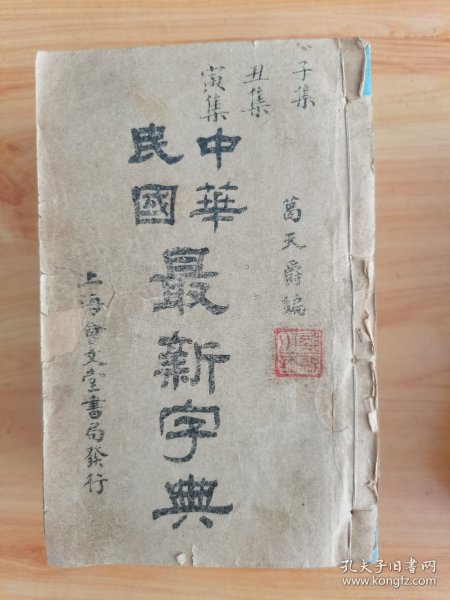 子集
丑集
寅集
葛天爵編
中華
民國
最新字典
上海會文堂書局發行
孔夫子旧书网
www.kongfz.com